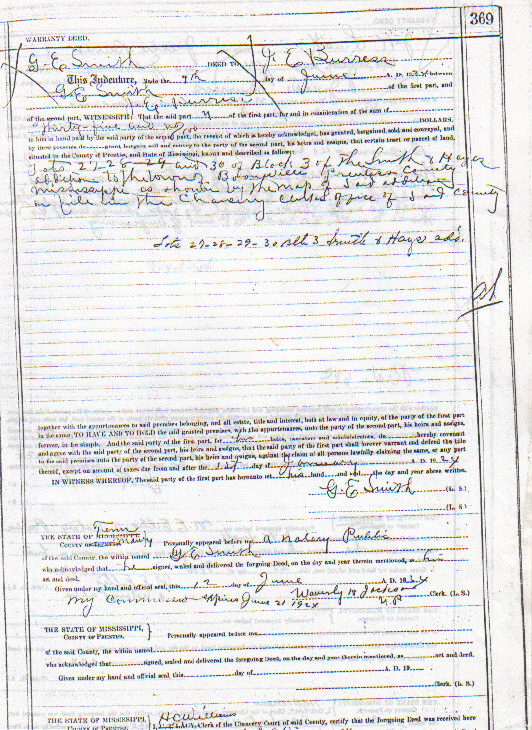 369
WARRANTY DEED.
G. E. Smith DEED TO J. E. Burress
This Indenture, Made the 9th day of June A. D. 1924 between
G E Smith of the first part, and
J. E. Burress
of the second part, WITNESSETH: That the said part y of the first part, for and in consideration of the sum of
Thirty-five and no/100 DOLLARS,
to him in hand paid by the said party of the second part, the receipt of which is hereby acknowledged, has granted, bargained, sold and conveyed, and
by these presents do grant, bargain, sell and convey to the party of the second part, his heirs and assigns, that certain tract or parcel of land,
situated in the County of Prentiss, and State of Mississippi, known and described as follows:
Lots 27-28-29 and 30 of Block 3 of the Smith & Hays
addition to the town of Booneville Prentiss County
Mississippi as shown by the map of said addition
on file in the Chancery clerks office of said county
Lots 27-28-29-30 Blk 3 Smith & Hays add.
together with the appurtenances to said premises belonging, and all estate, title and interest, both at law and in equity, of the party of the first part
in the same; TO HAVE AND TO HOLD the said granted premises, with the appurtenances, unto the party of the second part, his heirs and assigns,
forever, in fee simple. And the said party of the first part, for his heirs, executors and administrators, do hereby covenant
and agree with the party of the second part, his heirs and assigns, that the said party of the first part shall forever warrant and defend the title
to the said premises unto the party of the second part, his heirs and assigns, against the claim of all persons lawfully claiming the same, or any part
thereof, except on account of taxes due from and after the 1st day of January A. D. 1924
IN WITNESS WHEREOF, The said party of the first part has hereunto set his hand and seal the day and year above written.
G. E. Smith (L. S.)
(L. S.)
Tenn
THE STATE OF MISSISSIPPI,
COUNTY OF Personally appeared before me a Notary Public
of the said County, the within named G E Smith
who acknowledged that he signed, sealed and delivered the forgoing Deed, on the day and year therein mentioned, as his
act and deed.
Given under my hand and official seal, this 12 day of June A. D. 1924
My Commission expires June 21 1924 Jackson Clerk. (L. S.)
N. P.
THE STATE OF MISSISSIPPI,
COUNTY OF PRENTISS. Personally appeared before me
of the said County, the within named
who acknowledged that signed, sealed and delivered the foregoing Deed, on the day and year therein mentioned, as act and deed.
Given under my hand and official seal, this day of A. D. 19
Clerk. (L. S.)
THE STATE OF MISSISSIPPI, H C Williams
Clerk of the Chancery Court of said County, certify that the foregoing Deed was received here